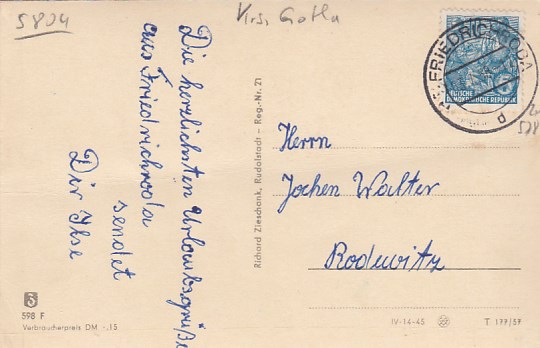 5804
Krs. Gotha
Die herzlichsten Urlaubsgrüße
aus Friedrichroda
sendet
Dir Ilse
Richard Zieschank, Rudolstadt – Reg.-Nr. 21
FRIEDRICHRODA
d
DEUTSCHE
DEMOKRATISCHE REPUBLIK
Herrn
Jochen Walter
Rodewitz
598 F
Verbraucherpreis DM -.15
IV-14-45
T 177/57